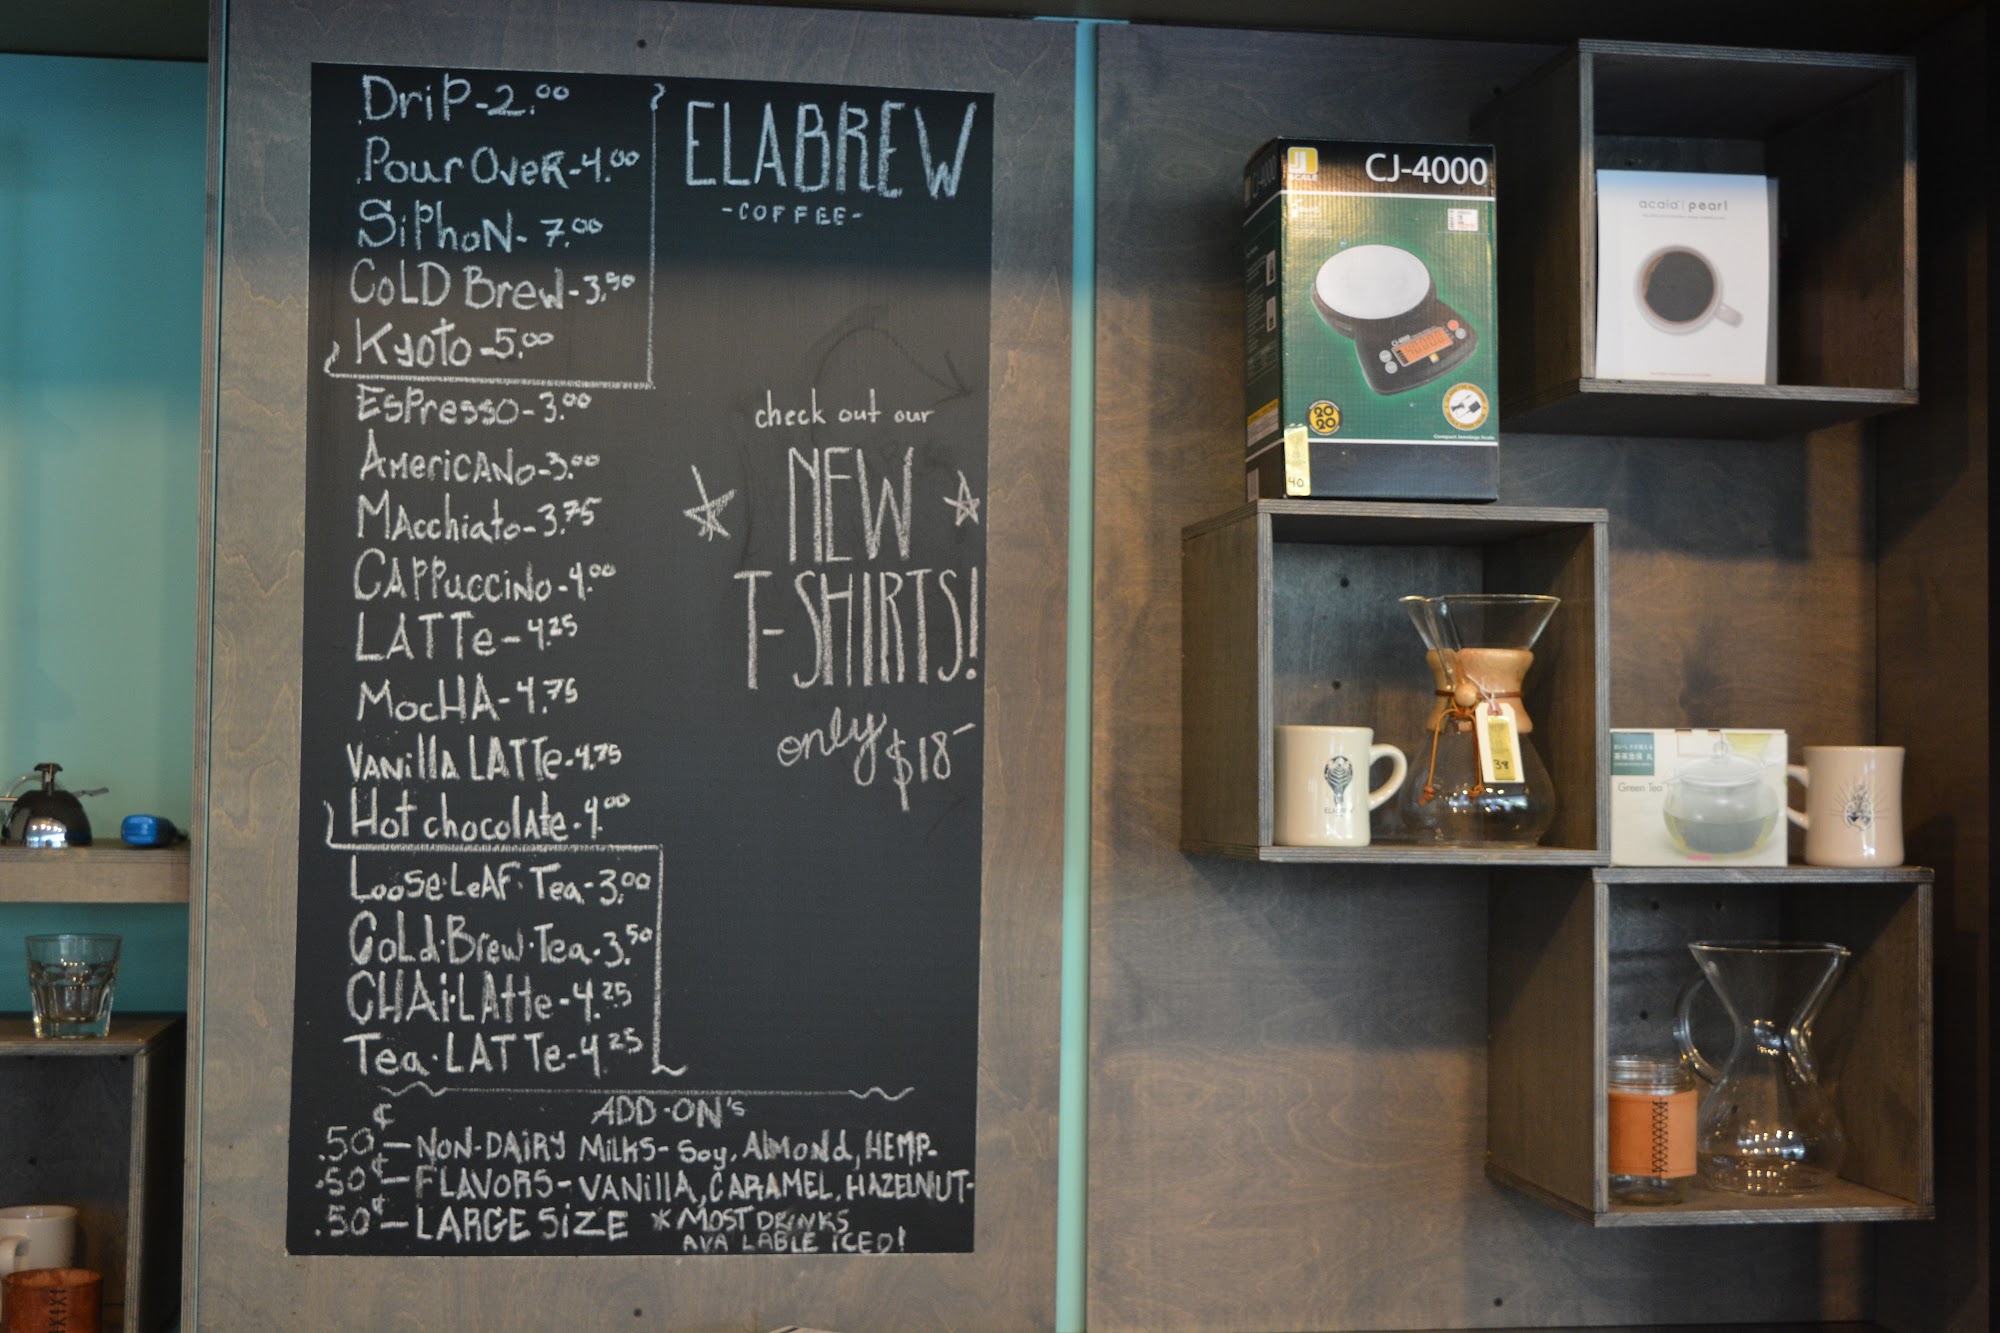 DriP-2.00
Pour Over-4.00
SiPhoN-7.00
CoLD Brew-3.50
Kyoto-5.00
EsPresso-3.00
AmericANo-3.00
MAcchiato-3.75
CAPPucciNo-4.00
LATTe-4.25
MocHA-4.75
VANillA LATTe-4.75
Hot chocolAte-4.00
Loose·LeAF·Tea-3.00
Cold·Brew·Tea-3.50
CHAi·LAtte-4.25
Tea·LATTe-4.25
ELABREW
-COFFEE-
check out our
NEW
T-SHIRTS!
only $18-
ADD-ON's
.50¢-NON-DAIRY MiLKS-Soy, Almond, HEMP-
.50¢-FLAVORS-VANillA, CARAMEL, HAZELNUT-
.50¢-LARGE SiZE *MOST DRINKS
AVA LABLE iCED!
JL
SCALE
CJ-4000
CJ-4000
2020
Compact Jennings Scale
40
acaia | pearl
38
Green Tea